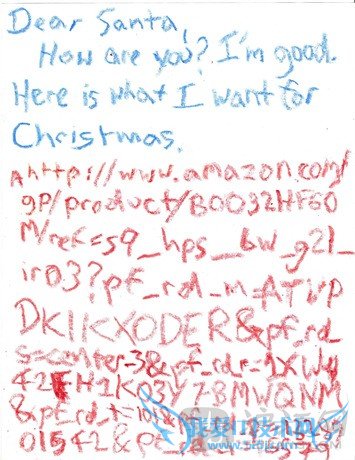 Dear Santa,
How are you? I'm good.
Here is what I want for
Christmas.
http://www.amazon.com/
gp/product/B0032HF60
M/ref=s9_hps_bw_g21_
ir03?pf_rd_m=ATVP
DKIKX0DER&pf_rd_
s=center-3&pf_rd_r=1XWY
42EH1KQ3Y7BMWQNM
&pf_rd_t=101
01542&pf_